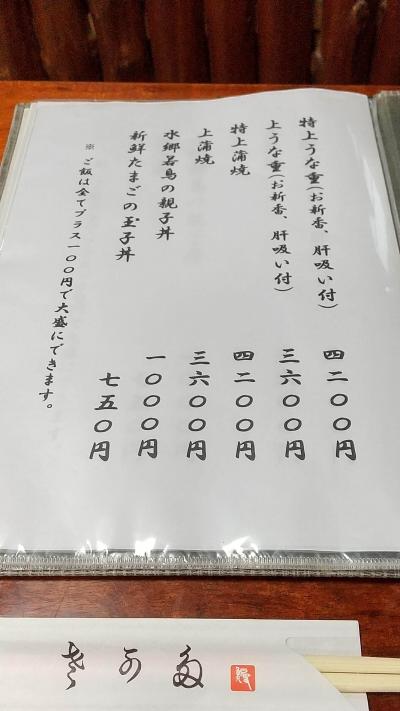 特上うな重(お新香、肝吸い付) 四二〇〇円
上うな重(お新香、肝吸い付) 三六〇〇円
特上蒲焼 四二〇〇円
上蒲焼 三六〇〇円
水郷若鳥の親子丼 一〇〇〇円
新鮮たまごの玉子丼 七五〇円
※ ご飯は全てプラス一〇〇円で大盛にできます。